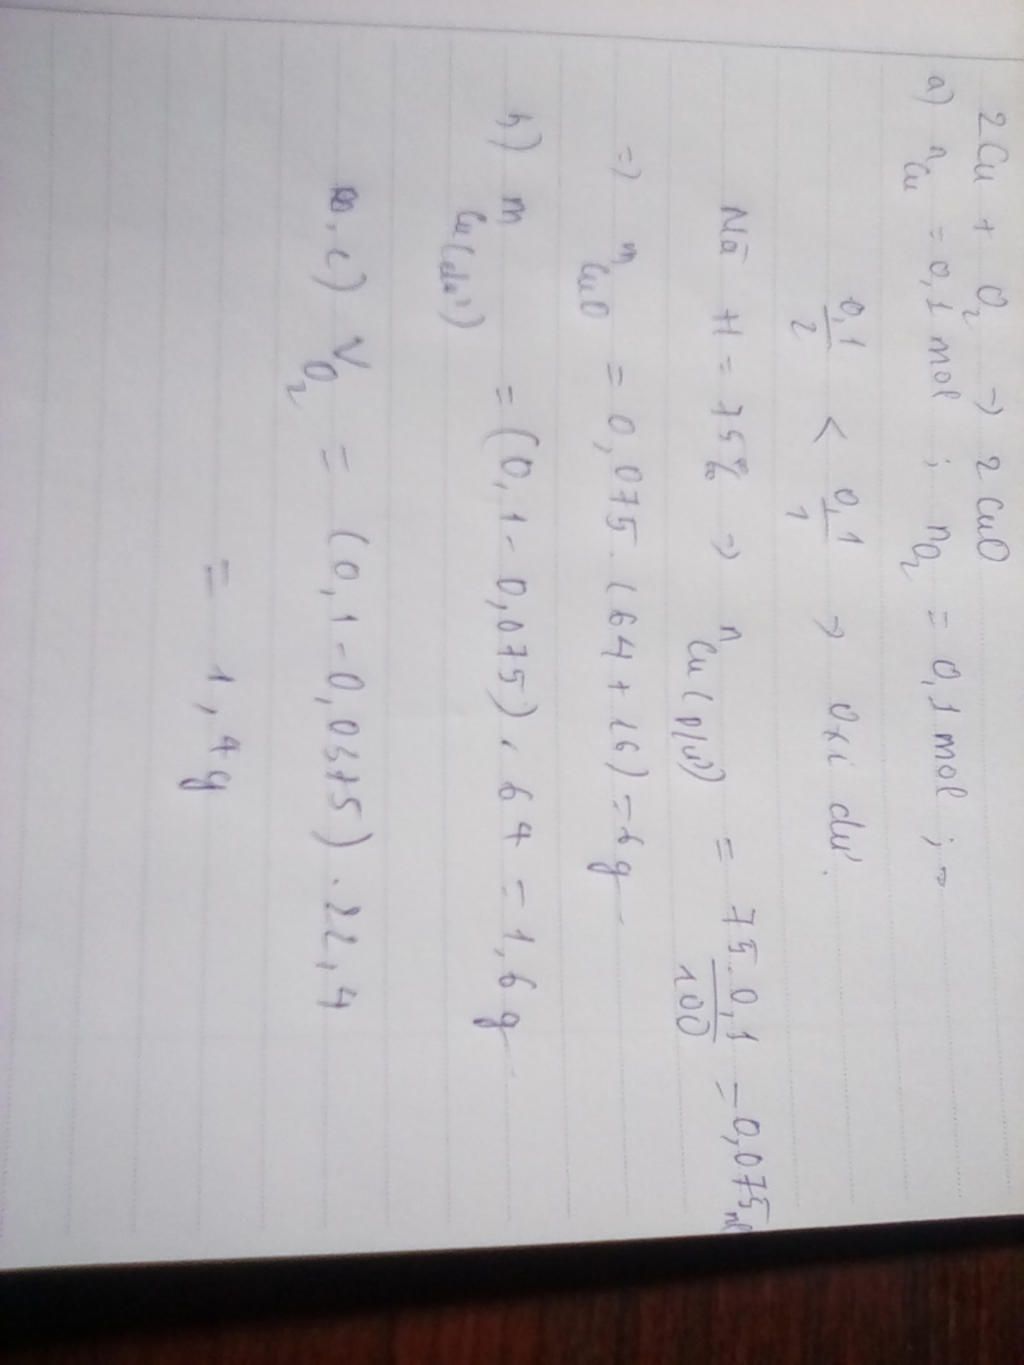 2Cu + O₂ → 2CuO
a) n Cu = 0,1 mol ; n O₂ = 0,1 mol ;
0,1/2 < 0,1/1 → oxi dư.
Nã H = 75% → n Cu(p/ứ) = 75.0,1/100 = 0,075 ml
=> m CuO = 0,075 . (64 + 16) = 6g
b) m Cu(dư) = (0,1 - 0,075) . 64 = 1,6g
c) V O₂ = (0,1 - 0,0375) . 22,4
= 1,4g